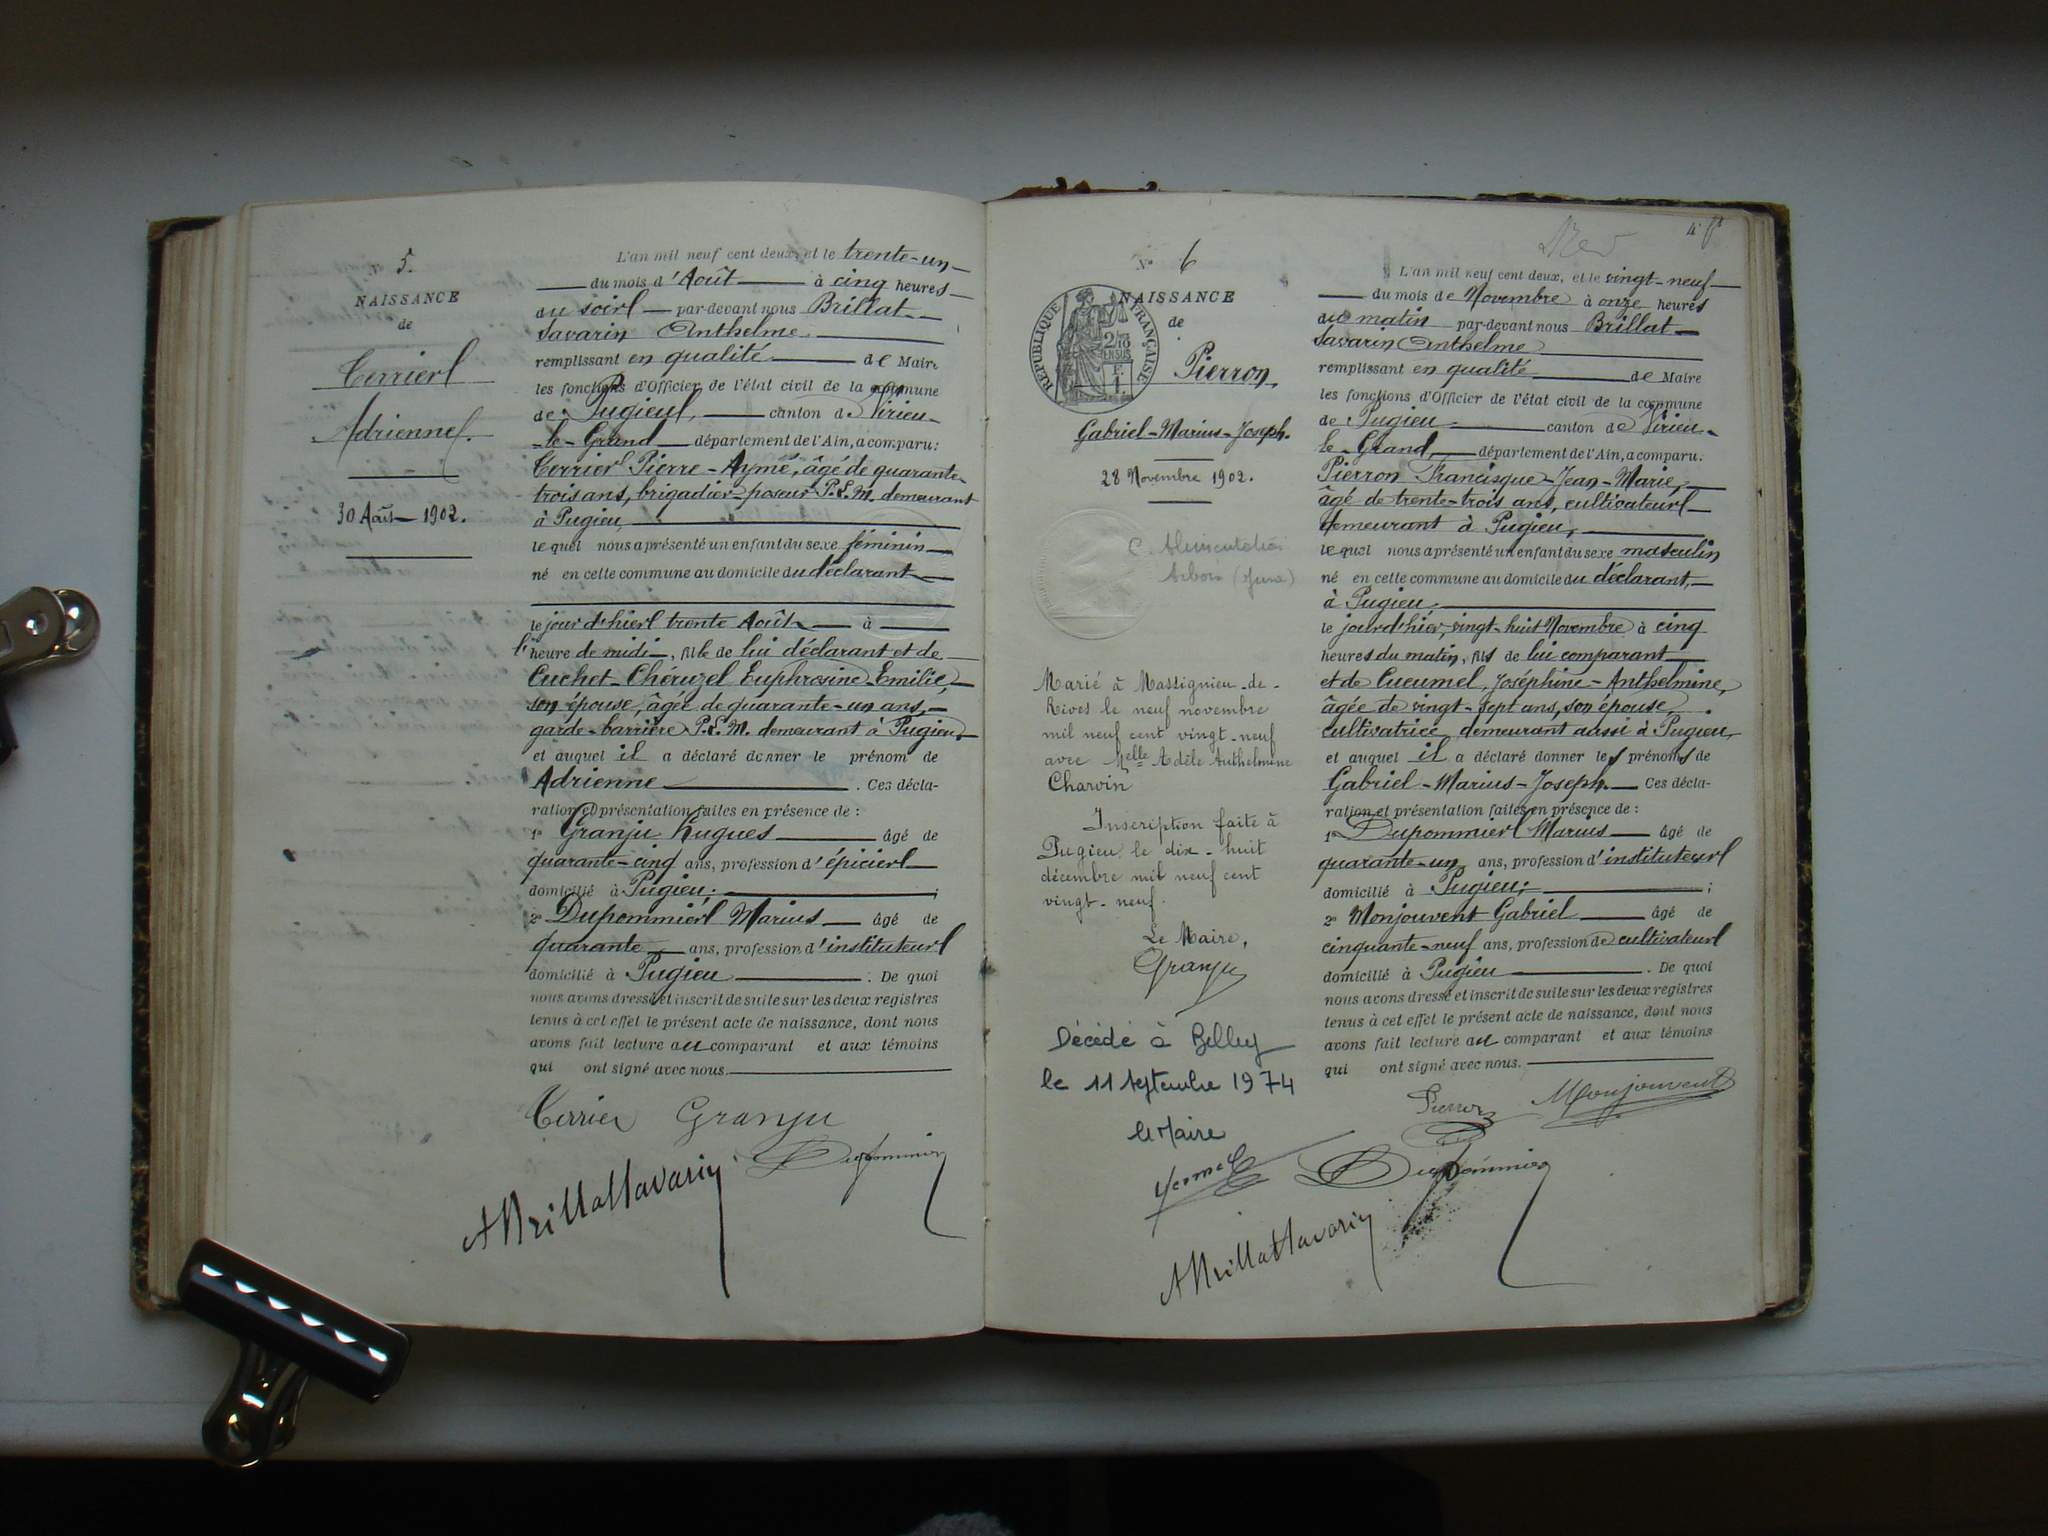 N° 5.
NAISSANCE
de
Terrier
Adrienne.
30 Août 1902.
L'an mil neuf cent deux, et le trente-un
du mois d'Août à cinq heures
du soir par-devant nous Brillat-
Savarin Anthelme
remplissant en qualité de Maire
les fonctions d'Officier de l'état civil de la commune
de Pugieu, canton de Virieu-
le-Grand département de l'Ain, a comparu:
Terrier Pierre-Aymé, âgé de quarante-
trois ans, brigadier-poseur P.L.M. demeurant
à Pugieu
lequel nous a présenté un enfant du sexe féminin
né en cette commune au domicile du déclarant
le jour d'hier trente Août à
l'heure de midi, fille de lui déclarant et de
Cuchet-Chéruzel Euphrosine-Emilie,
son épouse, âgée de quarante-un ans,
garde-barrière P.L.M. demeurant à Pugieu
et auquel il a déclaré donner le prénom de
Adrienne . Ces décla-
ration et présentation faites en présence de :
1° Granju Hugues âgé de
quarante-cinq ans, profession d'épicier
domicilié à Pugieu; ;
2° Dupommier Marius âgé de
quarante ans, profession d'instituteur
domicilié à Pugieu . De quoi
nous avons dressé et inscrit de suite sur les deux registres
tenus à cet effet le présent acte de naissance, dont nous
avons fait lecture au comparant et aux témoins
qui ont signé avec nous.
Terrier Granju
Dupommier
ABrillatSavarin
N° 6
NAISSANCE
de
REPUBLIQUE FRANÇAISE
2/10 EN SUS
Pierron
Gabriel-Marius-Joseph.
28 Novembre 1902.
C. Alimentation
Arbois (Jura)
Marié à Massignieu-de-
Rives le neuf novembre
mil neuf cent vingt-neuf
avec Melle Adèle Anthelmine
Charvin
Inscription faite à
Pugieu le dix-huit
décembre mil neuf cent
vingt-neuf.
Le Maire,
Granju
Décédé à Belley
le 11 septembre 1974
le Maire
L'an mil neuf cent deux, et le vingt-neuf
du mois de Novembre à onze heures
du matin par-devant nous Brillat-
Savarin Anthelme
remplissant en qualité de Maire
les fonctions d'Officier de l'état civil de la commune
de Pugieu canton de Virieu-
le-Grand, département de l'Ain, a comparu:
Pierron Francisque-Jean-Marie,
âgé de trente-trois ans, cultivateur
demeurant à Pugieu,
lequel nous a présenté un enfant du sexe masculin
né en cette commune au domicile du déclarant,
à Pugieu,
le jour d'hier, vingt-huit Novembre à cinq
heures du matin, fils de lui comparant
et de Cucumel, Joséphine-Anthelmine,
âgée de vingt-sept ans, son épouse,
cultivatrice, demeurant aussi à Pugieu
et auquel il a déclaré donner les prénoms de
Gabriel-Marius-Joseph. Ces décla-
ration et présentation faites en présence de :
1° Dupommier Marius âgé de
quarante-un ans, profession d'instituteur
domicilié à Pugieu; ;
2° Monjouvent Gabriel âgé de
cinquante-neuf ans, profession de cultivateur
domicilié à Pugieu . De quoi
nous avons dressé et inscrit de suite sur les deux registres
tenus à cet effet le présent acte de naissance, dont nous
avons fait lecture au comparant et aux témoins
qui ont signé avec nous.
Pierron Monjouvent
Dupommier
ABrillatSavarin